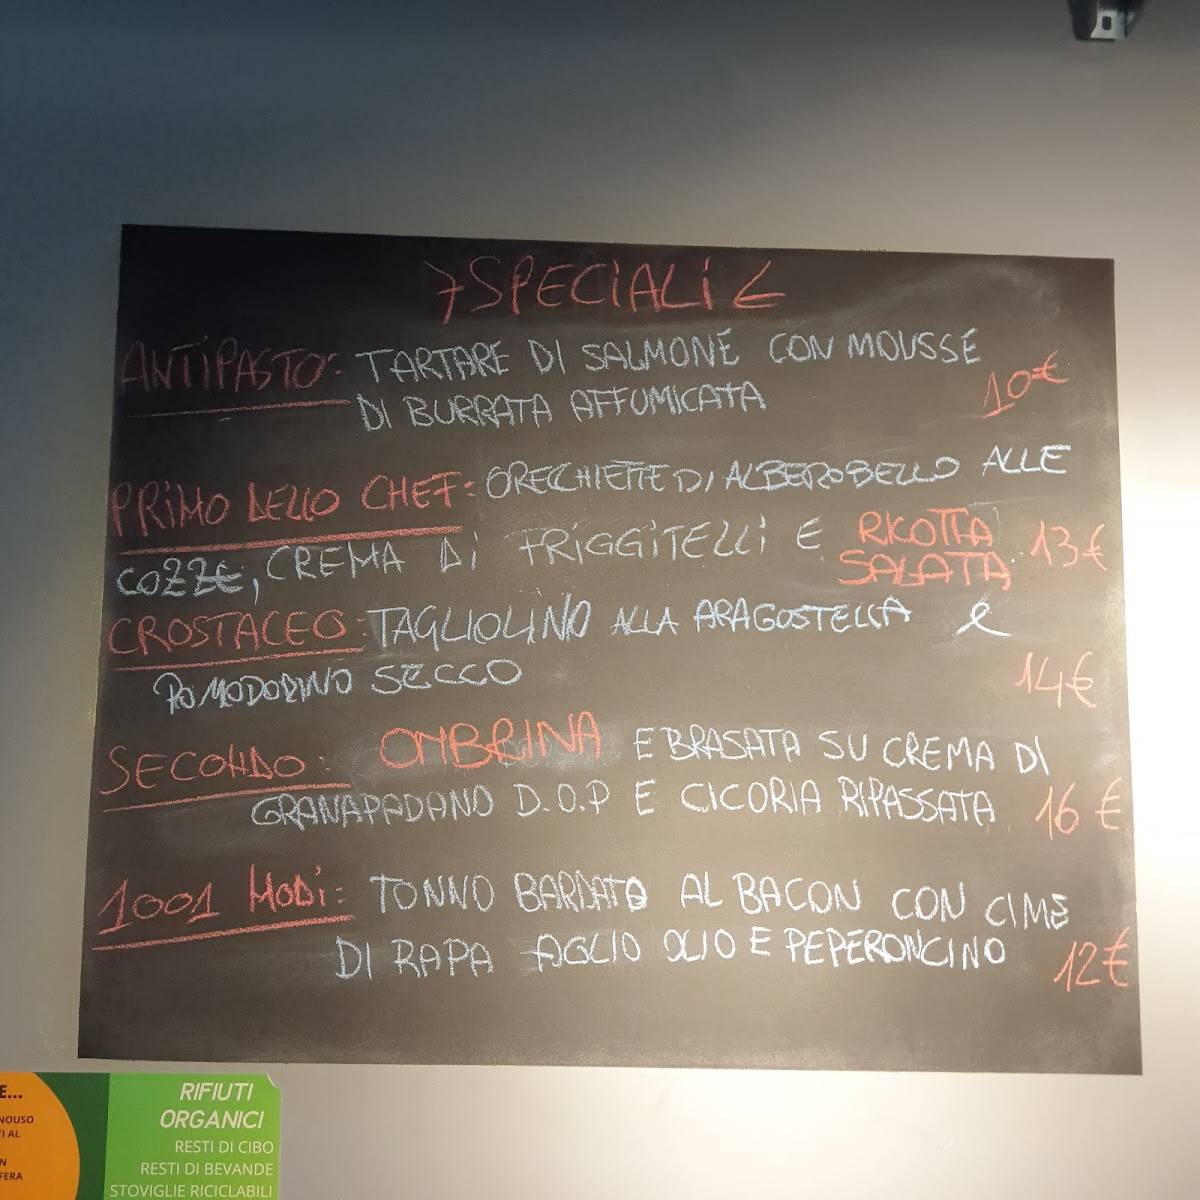 SPECIALI
ANTIPASTO: TARTARE DI SALMONE CON MOUSSE
DI BURRATA AFFUMICATA 10€
PRIMO DELLO CHEF: ORECCHIETTE DI ALBEROBELLO ALLE
COZZE, CREMA DI FRIGGITELLI E RICOTTA
SALATA 13€
CROSTACEO: TAGLIOLINO ALLA ARAGOSTELLA e
POMODORINO SECCO 14€
SECONDO: OMBRINA E BRASATA SU CREMA DI
GRANAPADANO D.O.P E CICORIA RIPASSATA 16 €
1001 MODI: TONNO BARDATO AL BACON CON CIME
DI RAPA AGLIO OLIO E PEPERONCINO 12€
E...
NOUSO
TI AL
N
FERA
RIFIUTI
ORGANICI
RESTI DI CIBO
RESTI DI BEVANDE
STOVIGLIE RICICLABILI